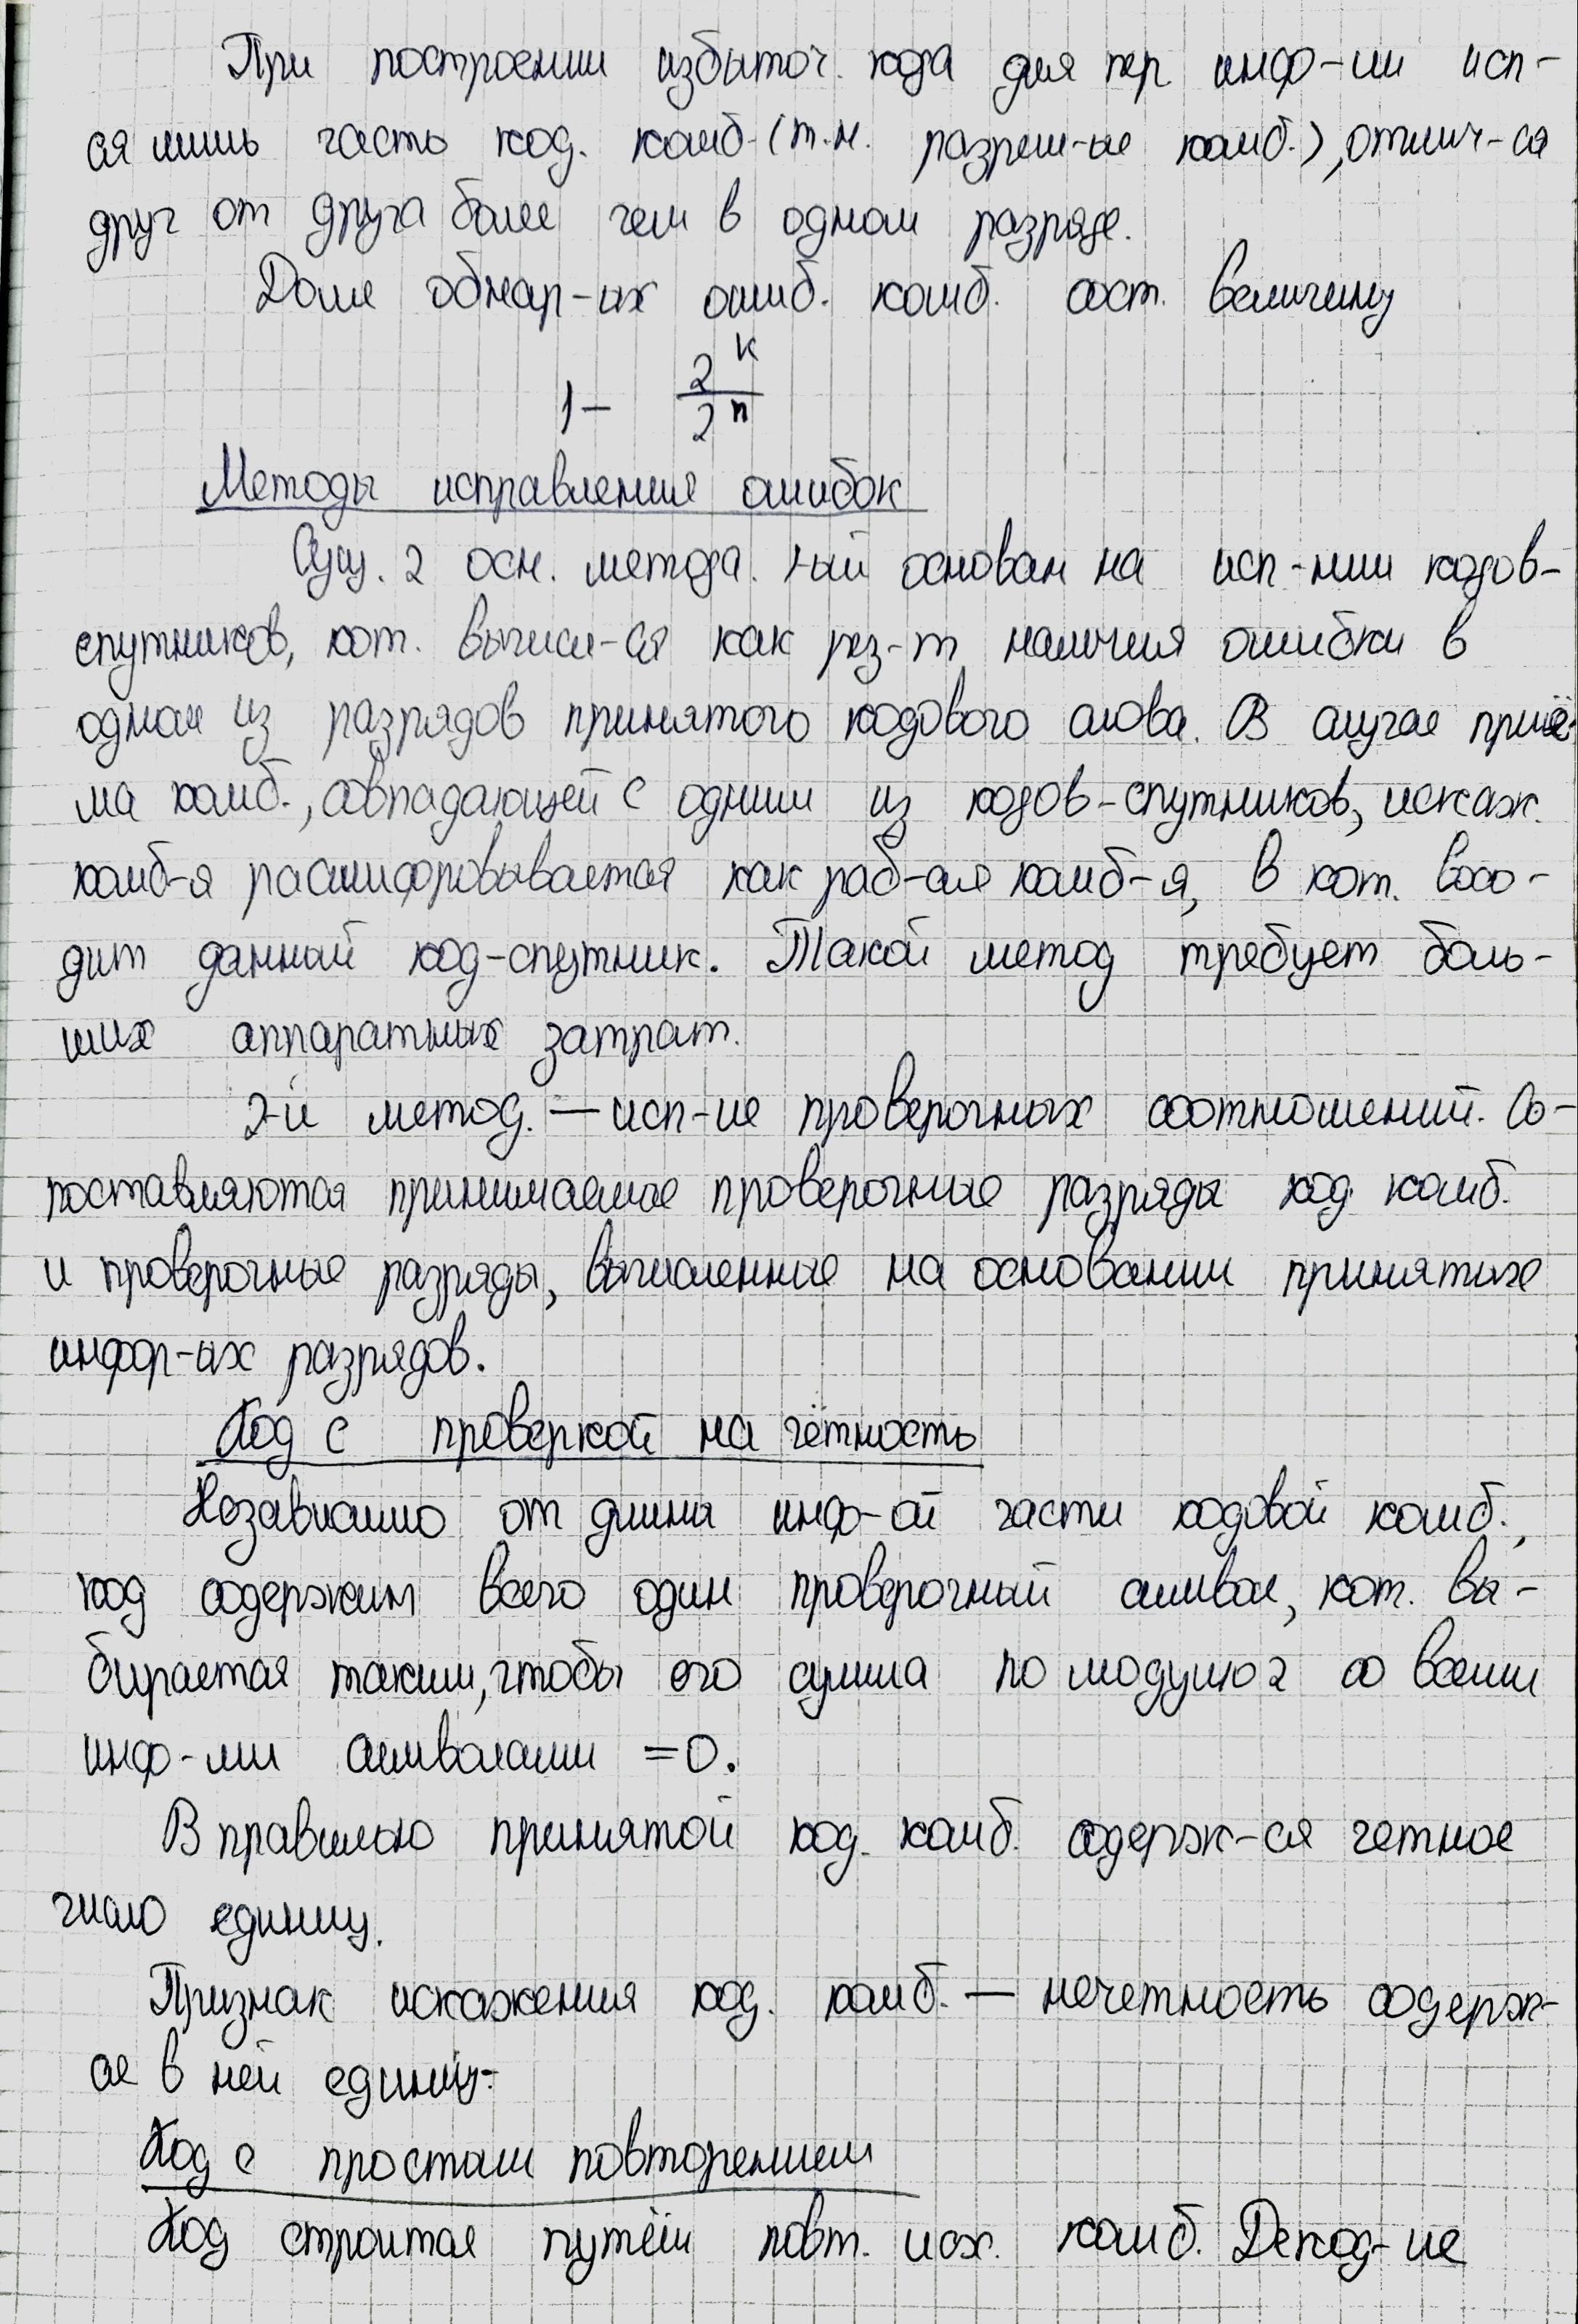 При построении избыточ. кода для пер. инф-ии исп-
ся лишь часть код. комб. (т.н. разреш-ые комб.), отлич-ся
друг от друга более чем в одном разряде.
Доля обнар-ых ошиб. комб. сост. величину
1 - 2^k / 2^n
Методы исправления ошибок
Сущ. 2 осн. метода. 1-ый основан на исп-нии кодов-
спутников, кот. вычисл-ся как рез-т наличия ошибки в
одном из разрядов принятого кодового слова. В случае приё-
ма комб., совпадающей с одним из кодов-спутников, искаж.
комб-я расшифровывается как раб-ая комб-я, в кот. вхо-
дит данный код-спутник. Такой метод требует боль-
ших аппаратных затрат.
2-й метод. — исп-ие проверочных соотношений. Со-
поставляются принимаемые проверочные разряды код. комб.
и проверочные разряды, вычисленные на основании принятых
инфор-ых разрядов.
Код с проверкой на чётность
Независимо от длины инф-ой части кодовой комб.,
код содержит всего один проверочный символ, кот. вы-
бирается таким, чтобы его сумма по модулю 2 со всеми
инф-ми символами =0.
В правильно принятой код. комб. содерж-ся четное
число единиц.
Признак искажения код. комб. — нечетность содерж-
ся в ней единиц.
Код с простым повторением
Код строится путём повт. исх. комб. Декод-ие